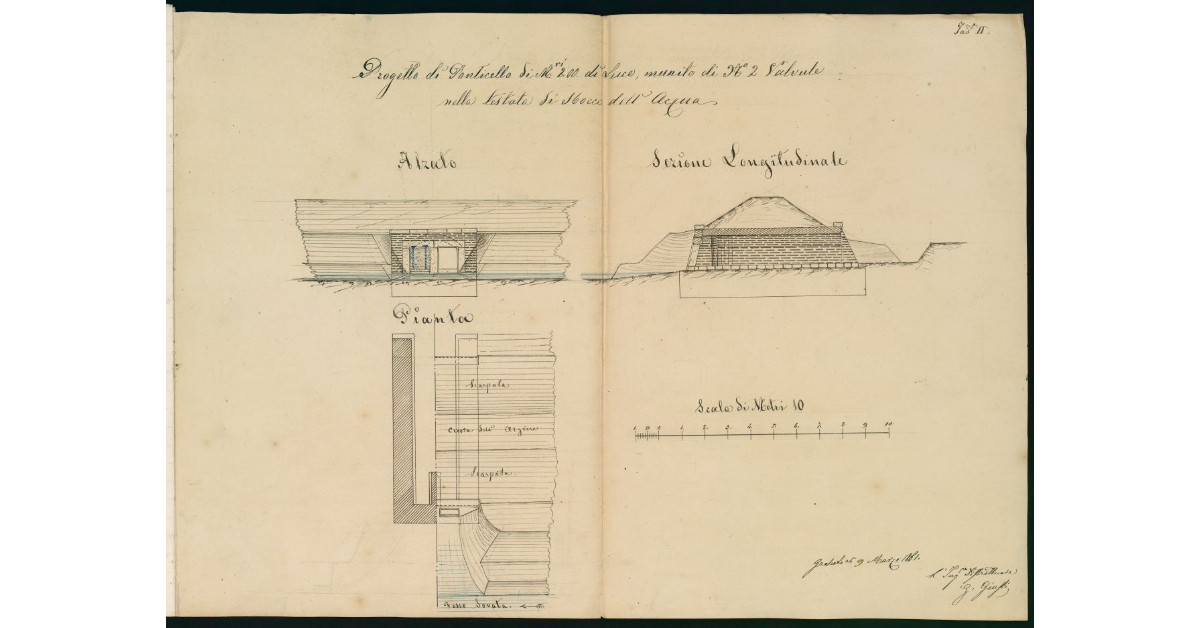 Tav. II.
Progetto di Ponticello di M.ri 2.00 di Luce, munito di N.o 2 Valvole
nella testata di dell' Acqua
Alzato
Sezione Longitudinale
Pianta
Scarpata
Scala di Metri 10
1 0 1 2 3 4 5 6 7 8 9 10
Cresta dell' Argine
Scarpata
9 Marzo
L' Ing.
Fosso Dovuta